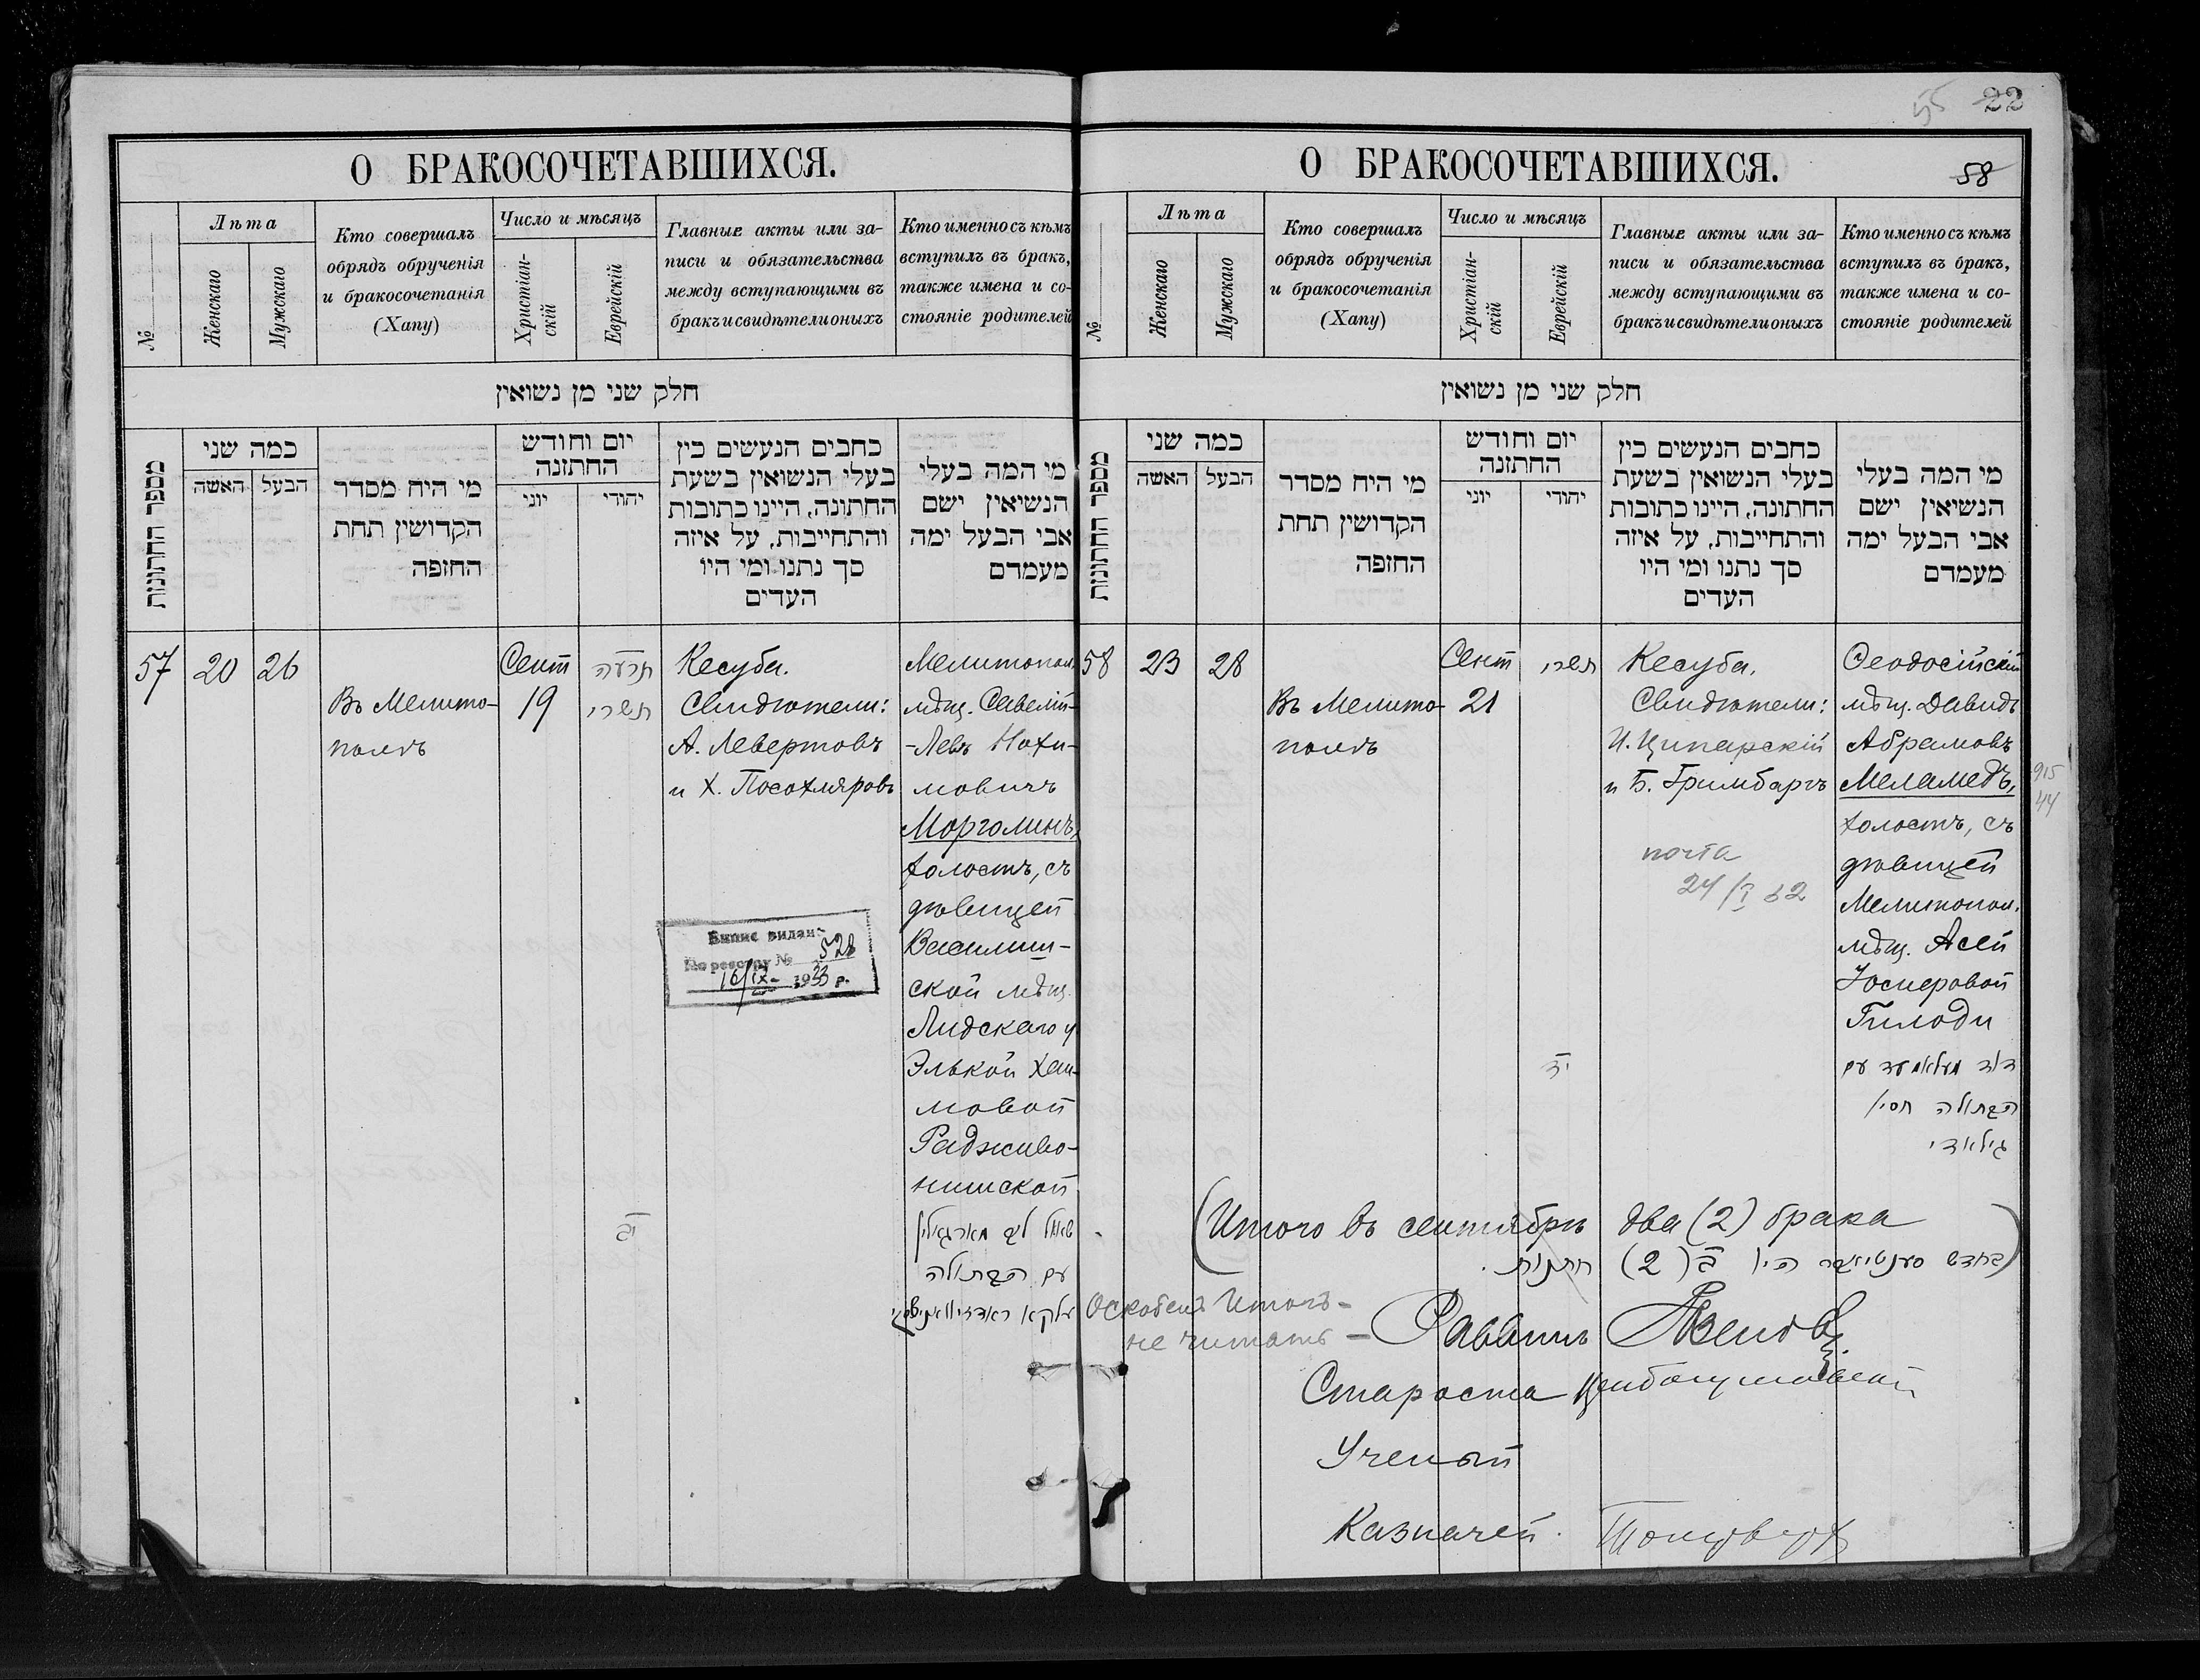 О БРАКОСОЧЕТАВШИХСЯ.
№
Лѣта
Женскаго
Мужскаго
Кто совершалъ
обрядъ обрученія
и бракосочетанія
(Хапу)
Число и мѣсяцъ
Христіан-
скій
Еврейскій
Главные акты или за-
писи и обязательства
между вступающими въ
бракъ и свидѣтели оныхъ
Кто именно съ кѣмъ
вступилъ въ бракъ,
также имена и со-
стояніе родителей
חלק שני מן נשואין
מספר החתונות
כמה שני
האשה
הבעל
מי היח מסדר
הקדושין תחת
החופה
יום וחודש
החתונה
יוני
יהודי
כחבים הנעשים בין
בעלי הנשואין בשעת
החתונה, היינו כתובות
והתחייבות, על איזה
סך נתנו ומי היו
העדים
מי המה בעלי
הנשיאין ישם
אבי הבעל ימה
מעמדם
57
20
26
Въ Мелито-
полѣ
Сент
19
תרעה
תשרי
יב
Кесуба.
Свидѣтели:
А. Левертовъ
и Х. Посохляровъ
Випис видан:
По реестру № 528
16/IX- 1933 р.
Мелитопол.
мѣщ. Савелій-
-Левъ Нохи-
мовичъ
Морголинъ,
холостъ, съ
дѣвицей
Василиш-
ской мѣщ.
Лидскаго у
Элькой Хаи-
мовой
Радживо-
нишской
שאול לב מארגאלין
עם הבתולה
עלקא ראדזיוואנישסקי
22
О БРАКОСОЧЕТАВШИХСЯ.
58
№
Лѣта
Женскаго
Мужскаго
Кто совершалъ
обрядъ обрученія
и бракосочетанія
(Хапу)
Число и мѣсяцъ
Христіан-
скій
Еврейскій
Главные акты или за-
писи и обязательства
между вступающими въ
бракъ и свидѣтели оныхъ
Кто именно съ кѣмъ
вступилъ въ бракъ,
также имена и со-
стояніе родителей
חלק שני מן נשואין
מספר החתונות
כמה שני
האשה
הבעל
מי היח מסדר
הקדושין תחת
החופה
יום וחודש
החתונה
יוני
יהודי
כחבים הנעשים בין
בעלי הנשואין בשעת
החתונה, היינו כתובות
והתחייבות, על איזה
סך נתנו ומי היו
העדים
מי המה בעלי
הנשיאין ישם
אבי הבעל ימה
מעמדם
58
23
28
Въ Мелито-
полѣ
Сент
21
תשרי
יד
Кесуба.
Свидѣтели:
И. Ципарскій
и Б. Гримбаргъ
почта
24/I 32
Ѳеодосійскій
мѣщ. Давидъ
Абрамовъ
Меламедъ,
холостъ, съ
дѣвицей
Мелитопол.
мѣщ. Асей
Іосиеровой
Гилоди
דוד מעלאמעד עם
הבתולה חסי'
גילאדי
915
44
(Итого въ сентябрѣ два (2) брака
(בחדש סענטיאבר היו ב (2) חתנות.
Оскобенъ Итогъ-
не читать -
Раввинъ
Староста
Ученый
Казначей.